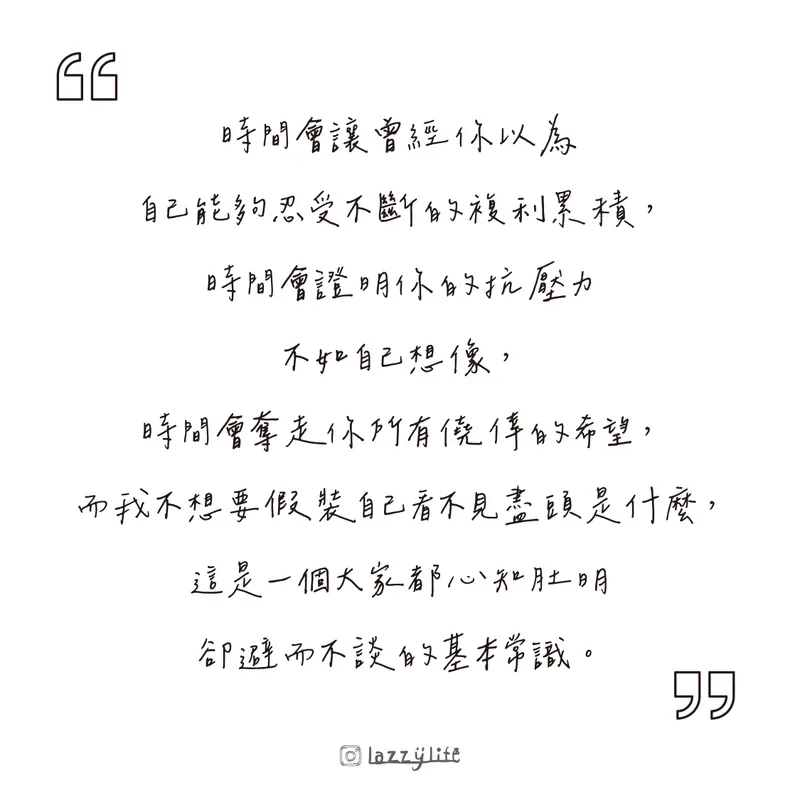 時間會讓曾經你以為
自己能夠忍受不斷的複利累積，
時間會證明你的抗壓力
不如自己想像，
時間會奪走你所有僥倖的希望，
而我不想要假裝自己看不見盡頭是什麼，
這是一個大家都心知肚明
卻避而不談的基本常識。
lazzylife